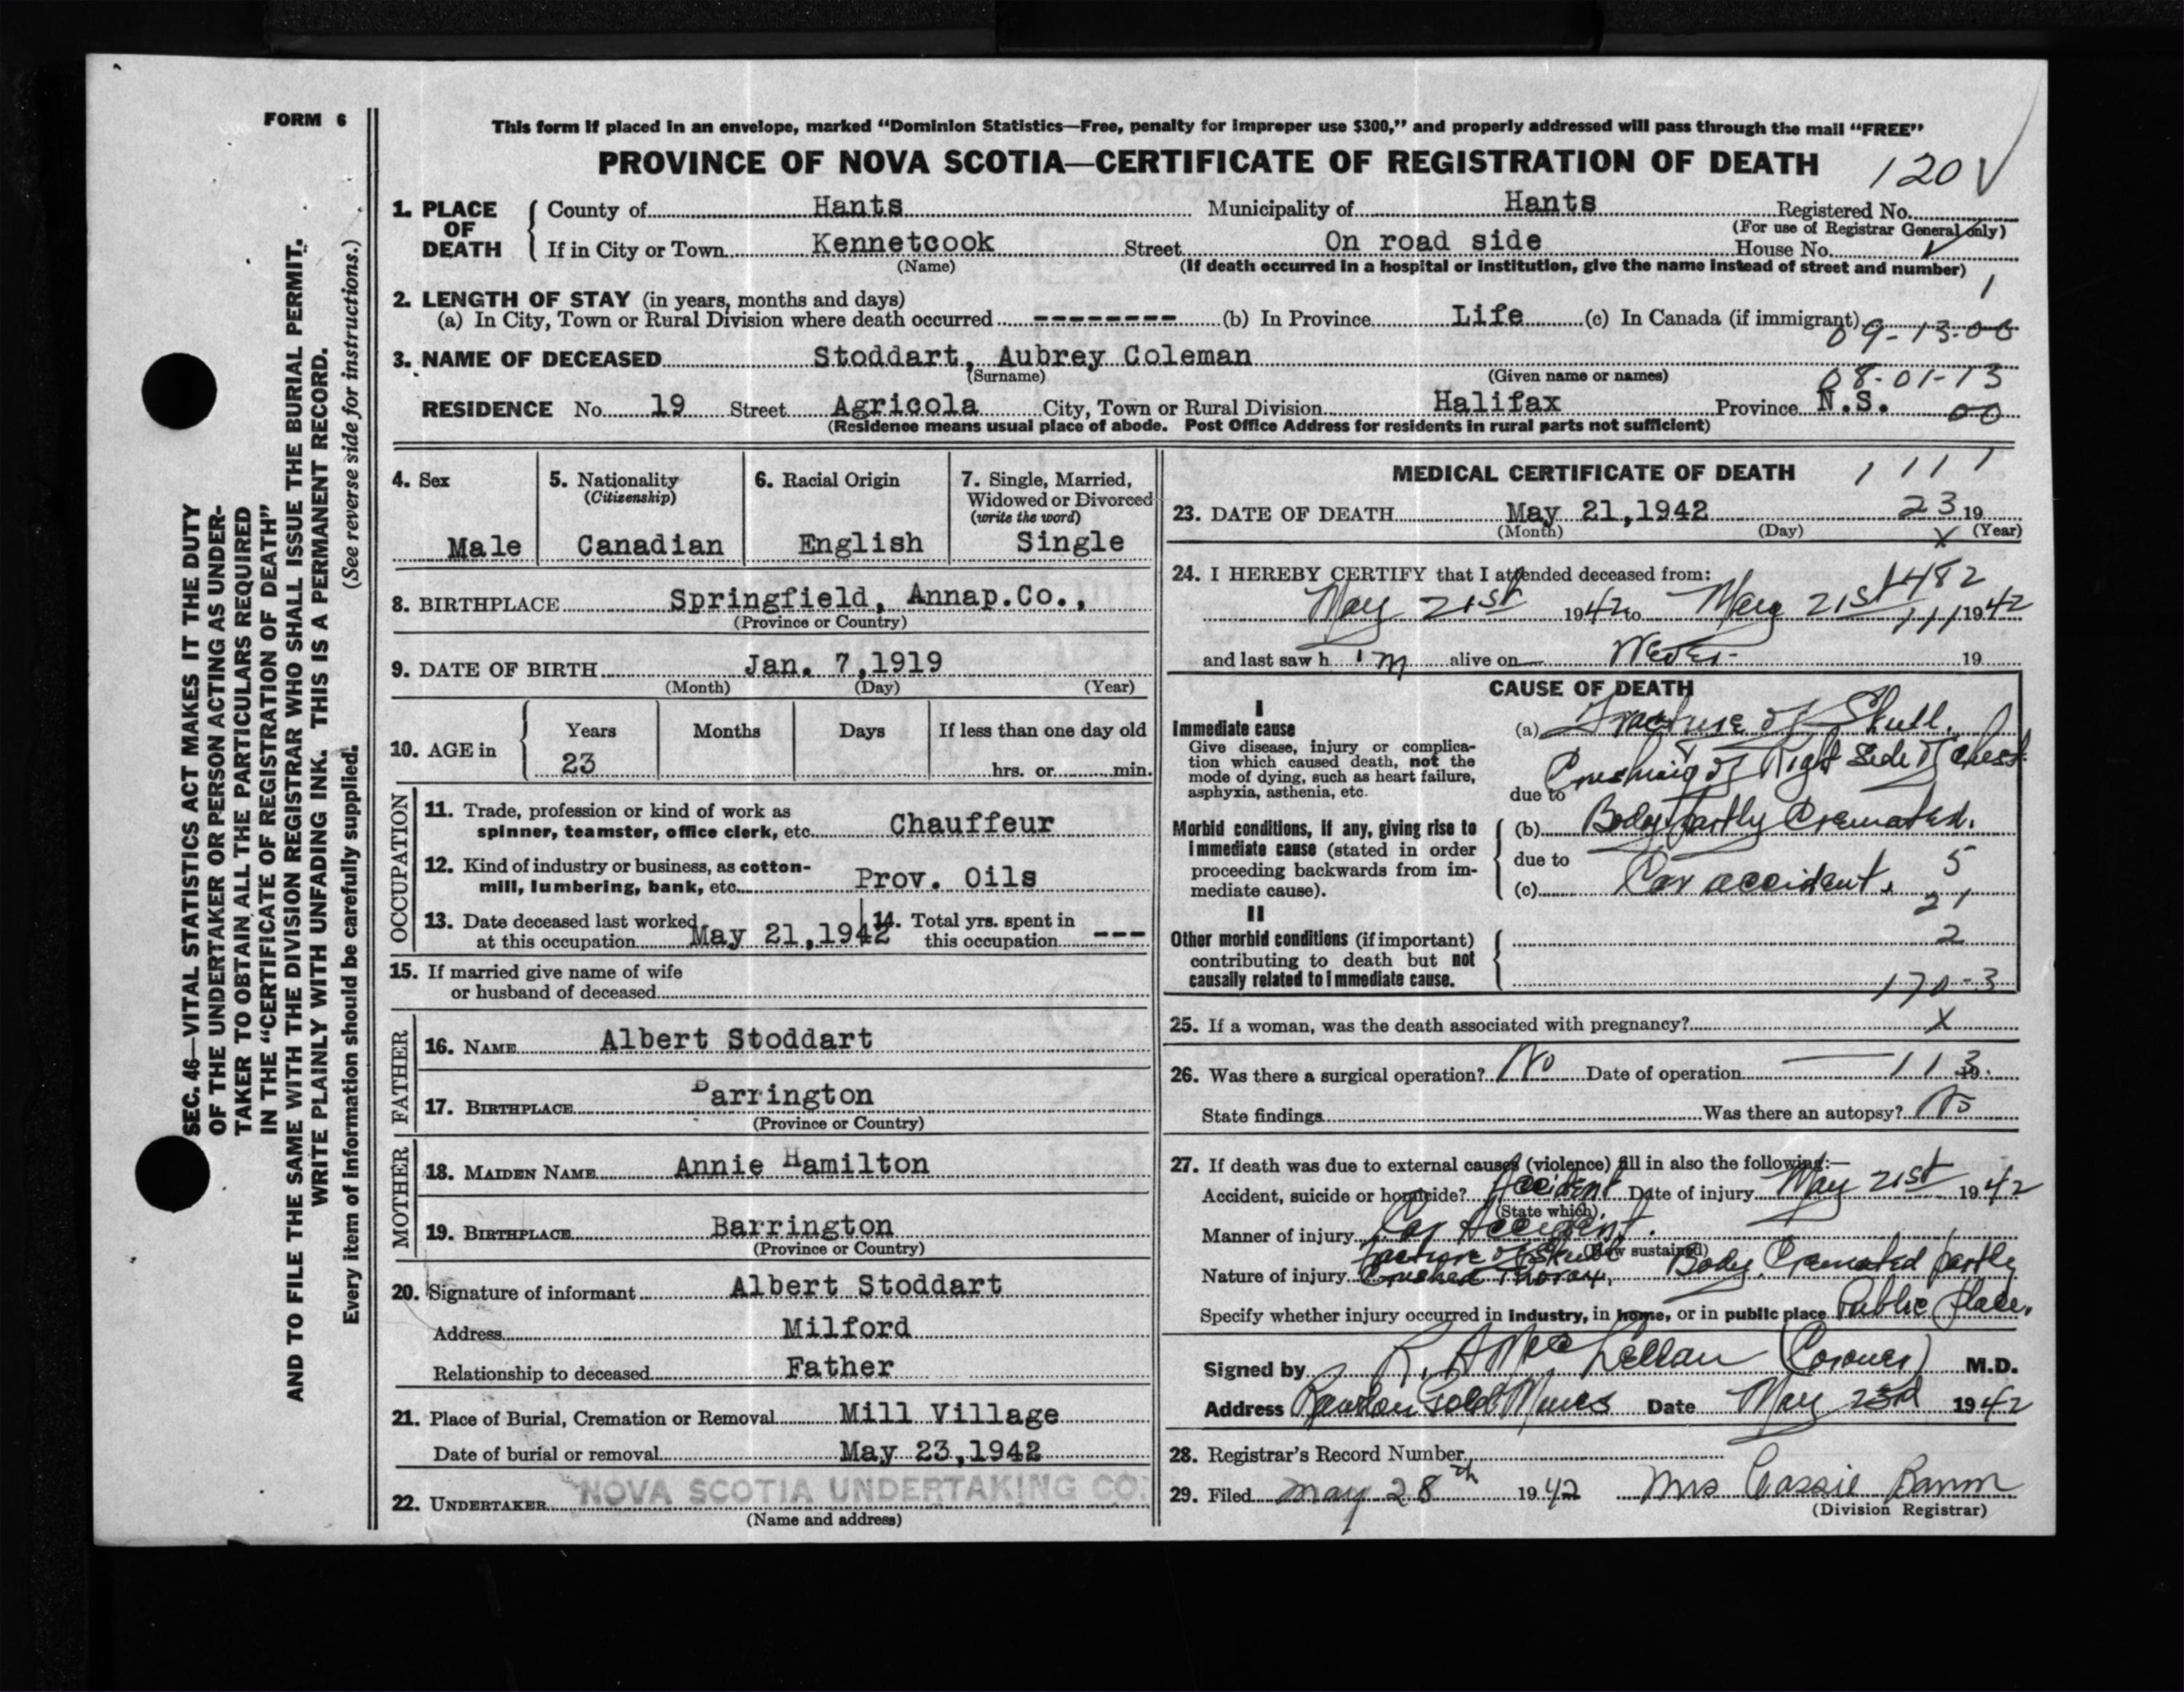 FORM 6
This form if placed in an envelope, marked “Dominion Statistics—Free, penalty for improper use $300,” and properly addressed will pass through the mail “FREE”
PROVINCE OF NOVA SCOTIA—CERTIFICATE OF REGISTRATION OF DEATH
120
1. PLACE OF DEATH
County of Hants Municipality of Hants Registered No.
(For use of Registrar General only)
If in City or Town Kennetcook Street On road side House No.
(Name) (If death occurred in a hospital or institution, give the name instead of street and number)
1
2. LENGTH OF STAY (in years, months and days)
(a) In City, Town or Rural Division where death occurred -------- (b) In Province Life (c) In Canada (if immigrant)
09-13-00
3. NAME OF DECEASED Stoddart, Aubrey Coleman
(Surname) (Given name or names)
08-01-13
RESIDENCE No. 19 Street Agricola City, Town or Rural Division Halifax Province N.S. 00
(Residence means usual place of abode. Post Office Address for residents in rural parts not sufficient)
4. Sex
Male
5. Nationality
(Citizenship)
Canadian
6. Racial Origin
English
7. Single, Married,
Widowed or Divorced
(write the word)
Single
8. BIRTHPLACE Springfield, Annap.Co.,
(Province or Country)
9. DATE OF BIRTH Jan. 7,1919
(Month) (Day) (Year)
10. AGE in
Years Months Days If less than one day old
23 hrs. or min.
OCCUPATION
11. Trade, profession or kind of work as
spinner, teamster, office clerk, etc. Chauffeur
12. Kind of industry or business, as cotton-
mill, lumbering, bank, etc. Prov. Oils
13. Date deceased last worked
at this occupation May 21,1942
14. Total yrs. spent in
this occupation ---
15. If married give name of wife
or husband of deceased
FATHER
16. NAME Albert Stoddart
17. BIRTHPLACE Barrington
(Province or Country)
MOTHER
18. MAIDEN NAME Annie Hamilton
19. BIRTHPLACE Barrington
(Province or Country)
20. Signature of informant Albert Stoddart
Address Milford
Relationship to deceased Father
21. Place of Burial, Cremation or Removal Mill Village
Date of burial or removal May 23,1942
22. UNDERTAKER NOVA SCOTIA UNDERTAKING CO.
(Name and address)
MEDICAL CERTIFICATE OF DEATH 1 1 1 1
23. DATE OF DEATH May 21,1942 23 19
(Month) (Day) X (Year)
24. I HEREBY CERTIFY that I attended deceased from: 1482
May 21st 1942 to May 21st 1942
111
and last saw h im alive on Never 19
CAUSE OF DEATH
I
Immediate cause
Give disease, injury or complica-
tion which caused death, not the
mode of dying, such as heart failure,
asphyxia, asthenia, etc.
(a) Fracture of Skull.
Crushing of Right Side of Chest
due to
Morbid conditions, if any, giving rise to
immediate cause (stated in order
proceeding backwards from im-
mediate cause).
(b) Body Partly Cremated.
due to 5
(c) Car accident. 21
II
Other morbid conditions (if important)
contributing to death but not
causally related to immediate cause.
2
170-3
25. If a woman, was the death associated with pregnancy? X
26. Was there a surgical operation? No Date of operation 113 19
State findings Was there an autopsy? No
27. If death was due to external causes (violence) fill in also the following:—
Accident, suicide or homicide? Accident Date of injury May 21st 1942
(State which)
Manner of injury Car Accident.
(How sustained)
Fracture of Skull
Nature of injury Crushed Thorax, Body Cremated partly
Specify whether injury occurred in industry, in home, or in public place Public place.
Signed by R. A. MacLellan (Coroner) M.D.
Address Rawdon Gold Mines Date May 23rd 1942
28. Registrar's Record Number
29. Filed May 28th 1942 Mrs Cassie
(Division Registrar)
SEC. 46—VITAL STATISTICS ACT MAKES IT THE DUTY
OF THE UNDERTAKER OR PERSON ACTING AS UNDER-
TAKER TO OBTAIN ALL THE PARTICULARS REQUIRED
IN THE “CERTIFICATE OF REGISTRATION OF DEATH”
AND TO FILE THE SAME WITH THE DIVISION REGISTRAR WHO SHALL ISSUE THE BURIAL PERMIT.
WRITE PLAINLY WITH UNFADING INK. THIS IS A PERMANENT RECORD.
Every item of information should be carefully supplied. (See reverse side for instructions.)